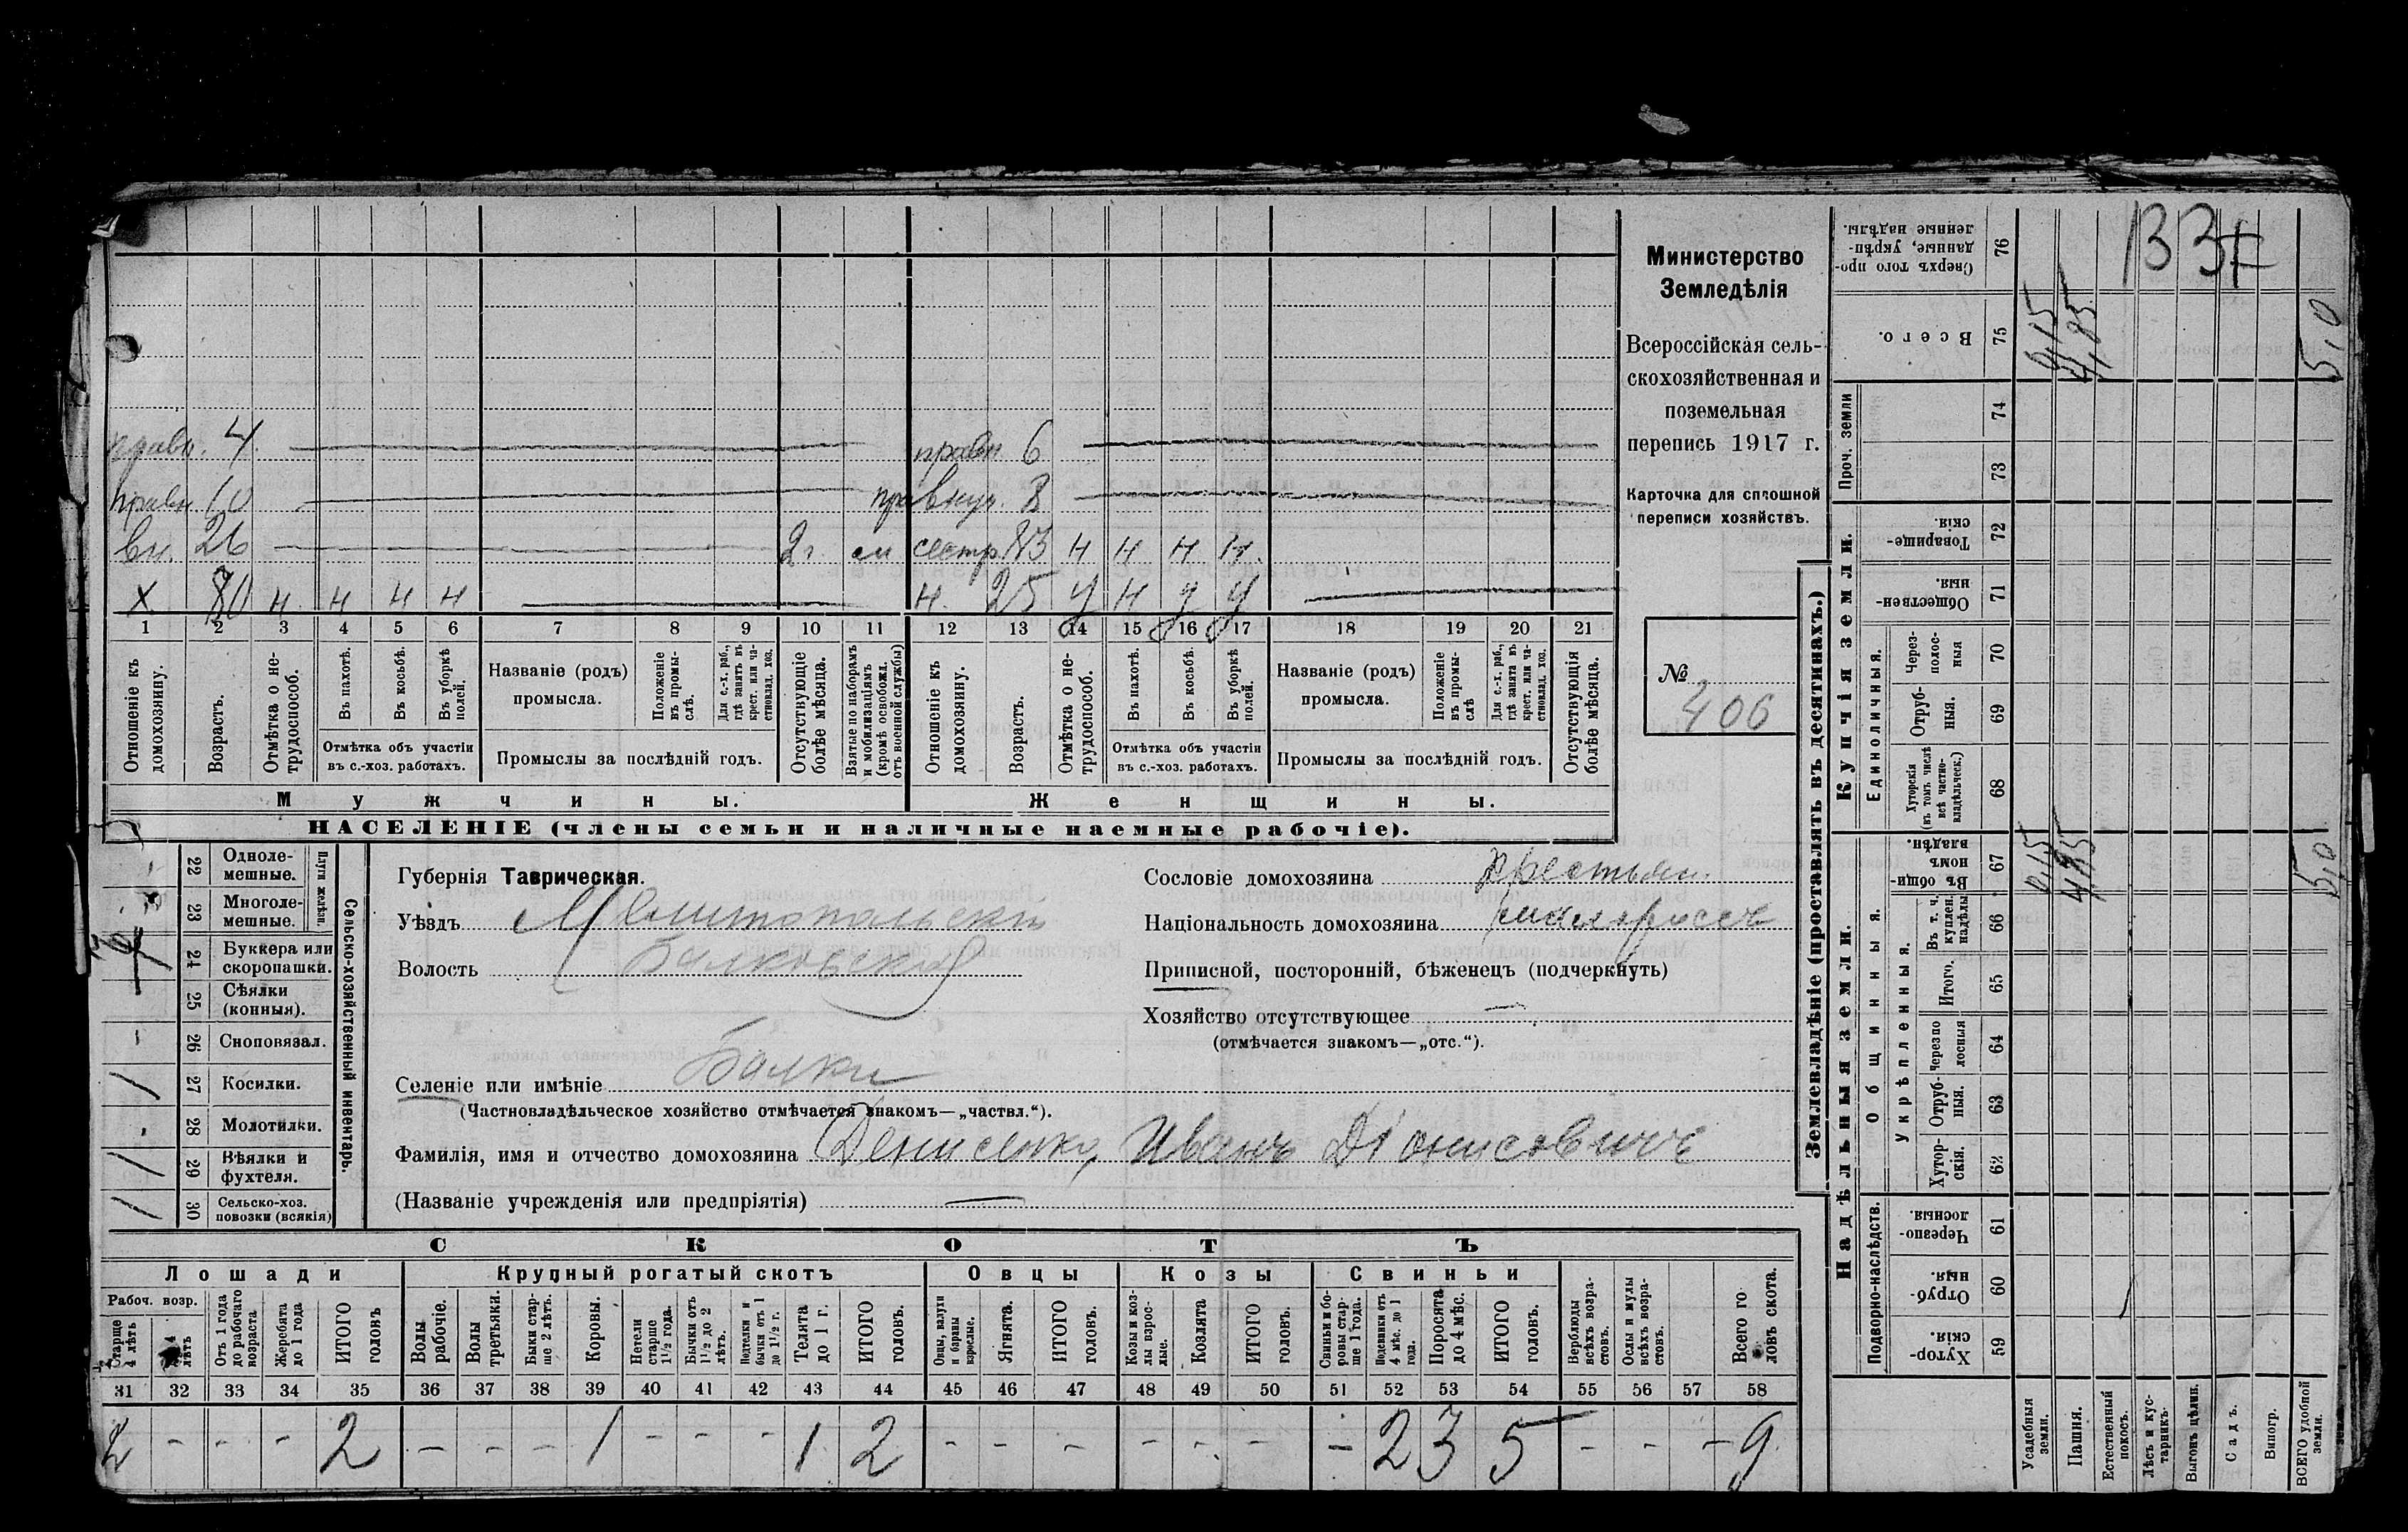 правн. 4. правн 6
правн. 10 правнуч. 8
вн. 26 2 г. сестр. 83 н н н н.
х. 80 н. н н н н. 25 у н у у
1 2 3 4 5 6 7 8 9 10 11 12 13 14 15 16 17 18 19 20 21
Отношеніе къ домохозяину.
Возрастъ.
Отмѣтка о не-
трудоспособ.
Въ пахотѣ.
Въ косьбѣ.
Въ уборкѣ
полей.
Отмѣтка объ участіи
въ с.-хоз. работахъ.
Названіе (родъ)
промысла.
Положеніе
въ промы-
слѣ.
Для с.-х. раб.,
гдѣ занятъ въ
крест. или ча-
стновлад. хоз.
Промыслы за послѣдній годъ.
Отсутствующіе
болѣе мѣсяца.
Взятые по наборамъ
и мобилизаціямъ
(кромѣ освобожд.
отъ военной службы)
Отношеніе къ
домохозяину.
Возрастъ.
Отмѣтка о не-
трудоспособ.
Въ пахотѣ.
Въ косьбѣ.
Въ уборкѣ
полей.
Отмѣтка объ участіи
въ с.-хоз. работахъ.
Названіе (родъ)
промысла.
Положеніе
въ промы-
слѣ
Для с.-х. раб.,
гдѣ занята въ
крест. или ча-
стновлад. хоз.
Промыслы за послѣдній годъ.
Отсутствующія
болѣе мѣсяца.
Мужчины. Женщины.
НАСЕЛЕНІЕ (члены семьи и наличные наемные рабочіе).
Министерство
Земледѣлія
Всероссійская сель-
скохозяйственная и
поземельная
перепись 1917 г.
Карточка для сплошной
переписи хозяйствъ.
№
406
22 Одноле-
мешные.
23 Многоле-
мешные.
Плуги желѣзн.
24 Буккера или
скоропашки.
25 Сѣялки
(конныя).
26 Сноповязал.
27 Косилки. 1
28 Молотилки.
29 Вѣялки и
фухтеля. 1
30 Сельско-хоз.
повозки (всякія) 1
Сельско-хозяйственный инвентарь.
Губернія Таврическая.
Уѣздъ Мелитопольскій
Волость Балковская
Селеніе или имѣніе Балки
(Частновладѣльческое хозяйство отмѣчается знакомъ—„частвл.“).
Фамилія, имя и отчество домохозяина Денисенко, Иванъ Діонисовичъ
(Названіе учрежденія или предпріятія) —
Сословіе домохозяина крестьян.
Національность домохозяина малороссъ
Приписной, посторонній, бѣженецъ (подчеркнуть)
Хозяйство отсутствующее —
(отмѣчается знакомъ—„отс.“).
СКОТЪ
Лошади
Рабоч. возр.
старше
4 лѣтъ
лѣтъ
Отъ 1 года
до рабочаго
возраста
Жеребята
до 1 года
ИТОГО
головъ
Крупный рогатый скотъ
Волы
рабочіе.
Волы
третьяки.
Быки стар-
ше 2 лѣтъ.
Коровы.
Нетели
старше
1½ года.
Бычки отъ
1½ до 2
лѣтъ.
Подтелки и
бычки отъ 1
до 1½ г.
Телята
до 1 г.
ИТОГО
головъ.
Овцы
Овцы, валухи
и бараны
взрослые.
Ягнята.
ИТОГО
головъ.
Козы
Козы и коз-
лы взрос-
лые.
Козлята
ИТОГО
головъ.
Свиньи
Свиньи и бо-
ровы стар-
ше 1 года.
Подсвинки отъ
4 мѣс. до 1
года.
Поросята
до 4 мѣс.
ИТОГО
головъ.
Верблюды
всѣхъ возра-
стовъ.
Ослы и мулы
всѣхъ возра-
стовъ.
Всего го-
ловъ скота.
31 32 33 34 35 36 37 38 39 40 41 42 43 44 45 46 47 48 49 50 51 52 53 54 55 56 57 58
2 - - - 2 - - - 1 - - - 1 2 - - - - - - - 2 3 5 - - - 9
Землевладѣніе (проставлять въ десятинахъ.)
Надѣльныя земли.
Подворно-наслѣдств.
Хутор-
скія. 59
Отруб-
ныя. 60
Черезпо-
лосныя. 61
Общинныя.
Укрѣпленныя.
Хутор-
скія. 62
Отруб-
ныя. 63
Черезпо
лосныя 64
Итого. 65
Въ т. ч.
куплен.
надѣлы 66
Въ общи-
номъ
владѣн. 67
0,15
4,85
5,0
Купчія земли.
Единоличныя.
Хуторскія
(въ томъ числѣ
всѣ частно-
владѣльческ.) 68
Отруб-
ныя. 69
Через-
полос-
ныя 70
Обществен-
ныя. 71
Товарище-
скія. 72
Проч. земли
73
74
Всего. 75
0,15
4,85
5,0
Сверхъ того про-
данные, укрѣп-
ленные надѣлы. 76
Усадебныя
земли.
Пашня.
Естественный
покосъ.
Лѣсъ и кус-
тарникъ.
Выгонъ цѣлин.
Садъ.
Виногр.
ВСЕГО удобной
земли.